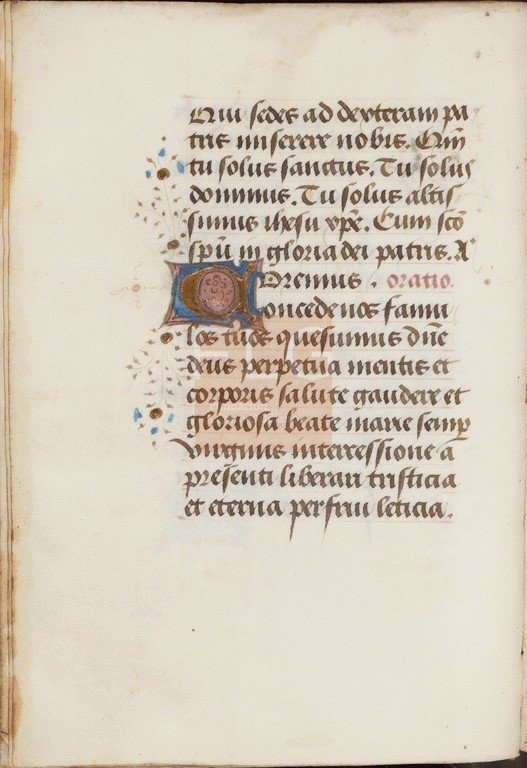 Qui sedes ad dexteram pa
tris miserere nobis. Qm̄
tu solus sanctus. Tu solus
dominus. Tu solus altis
simus ihesu xp̄e. Cum scō
spū in gloria dei patris. A
Oremus. oratio.
Concede nos famu
los tuos quesumus dn̄e
deus perpetua mentis et
corporis salute gaudere et
gloriosa beate marie semp
virginis intercessione a
presenti liberari tristicia
et eterna perfrui leticia.